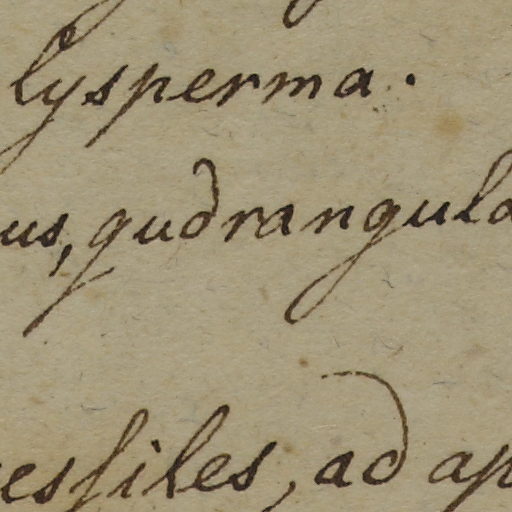 lysperma.
us, qudrangula
essiles, ad ap